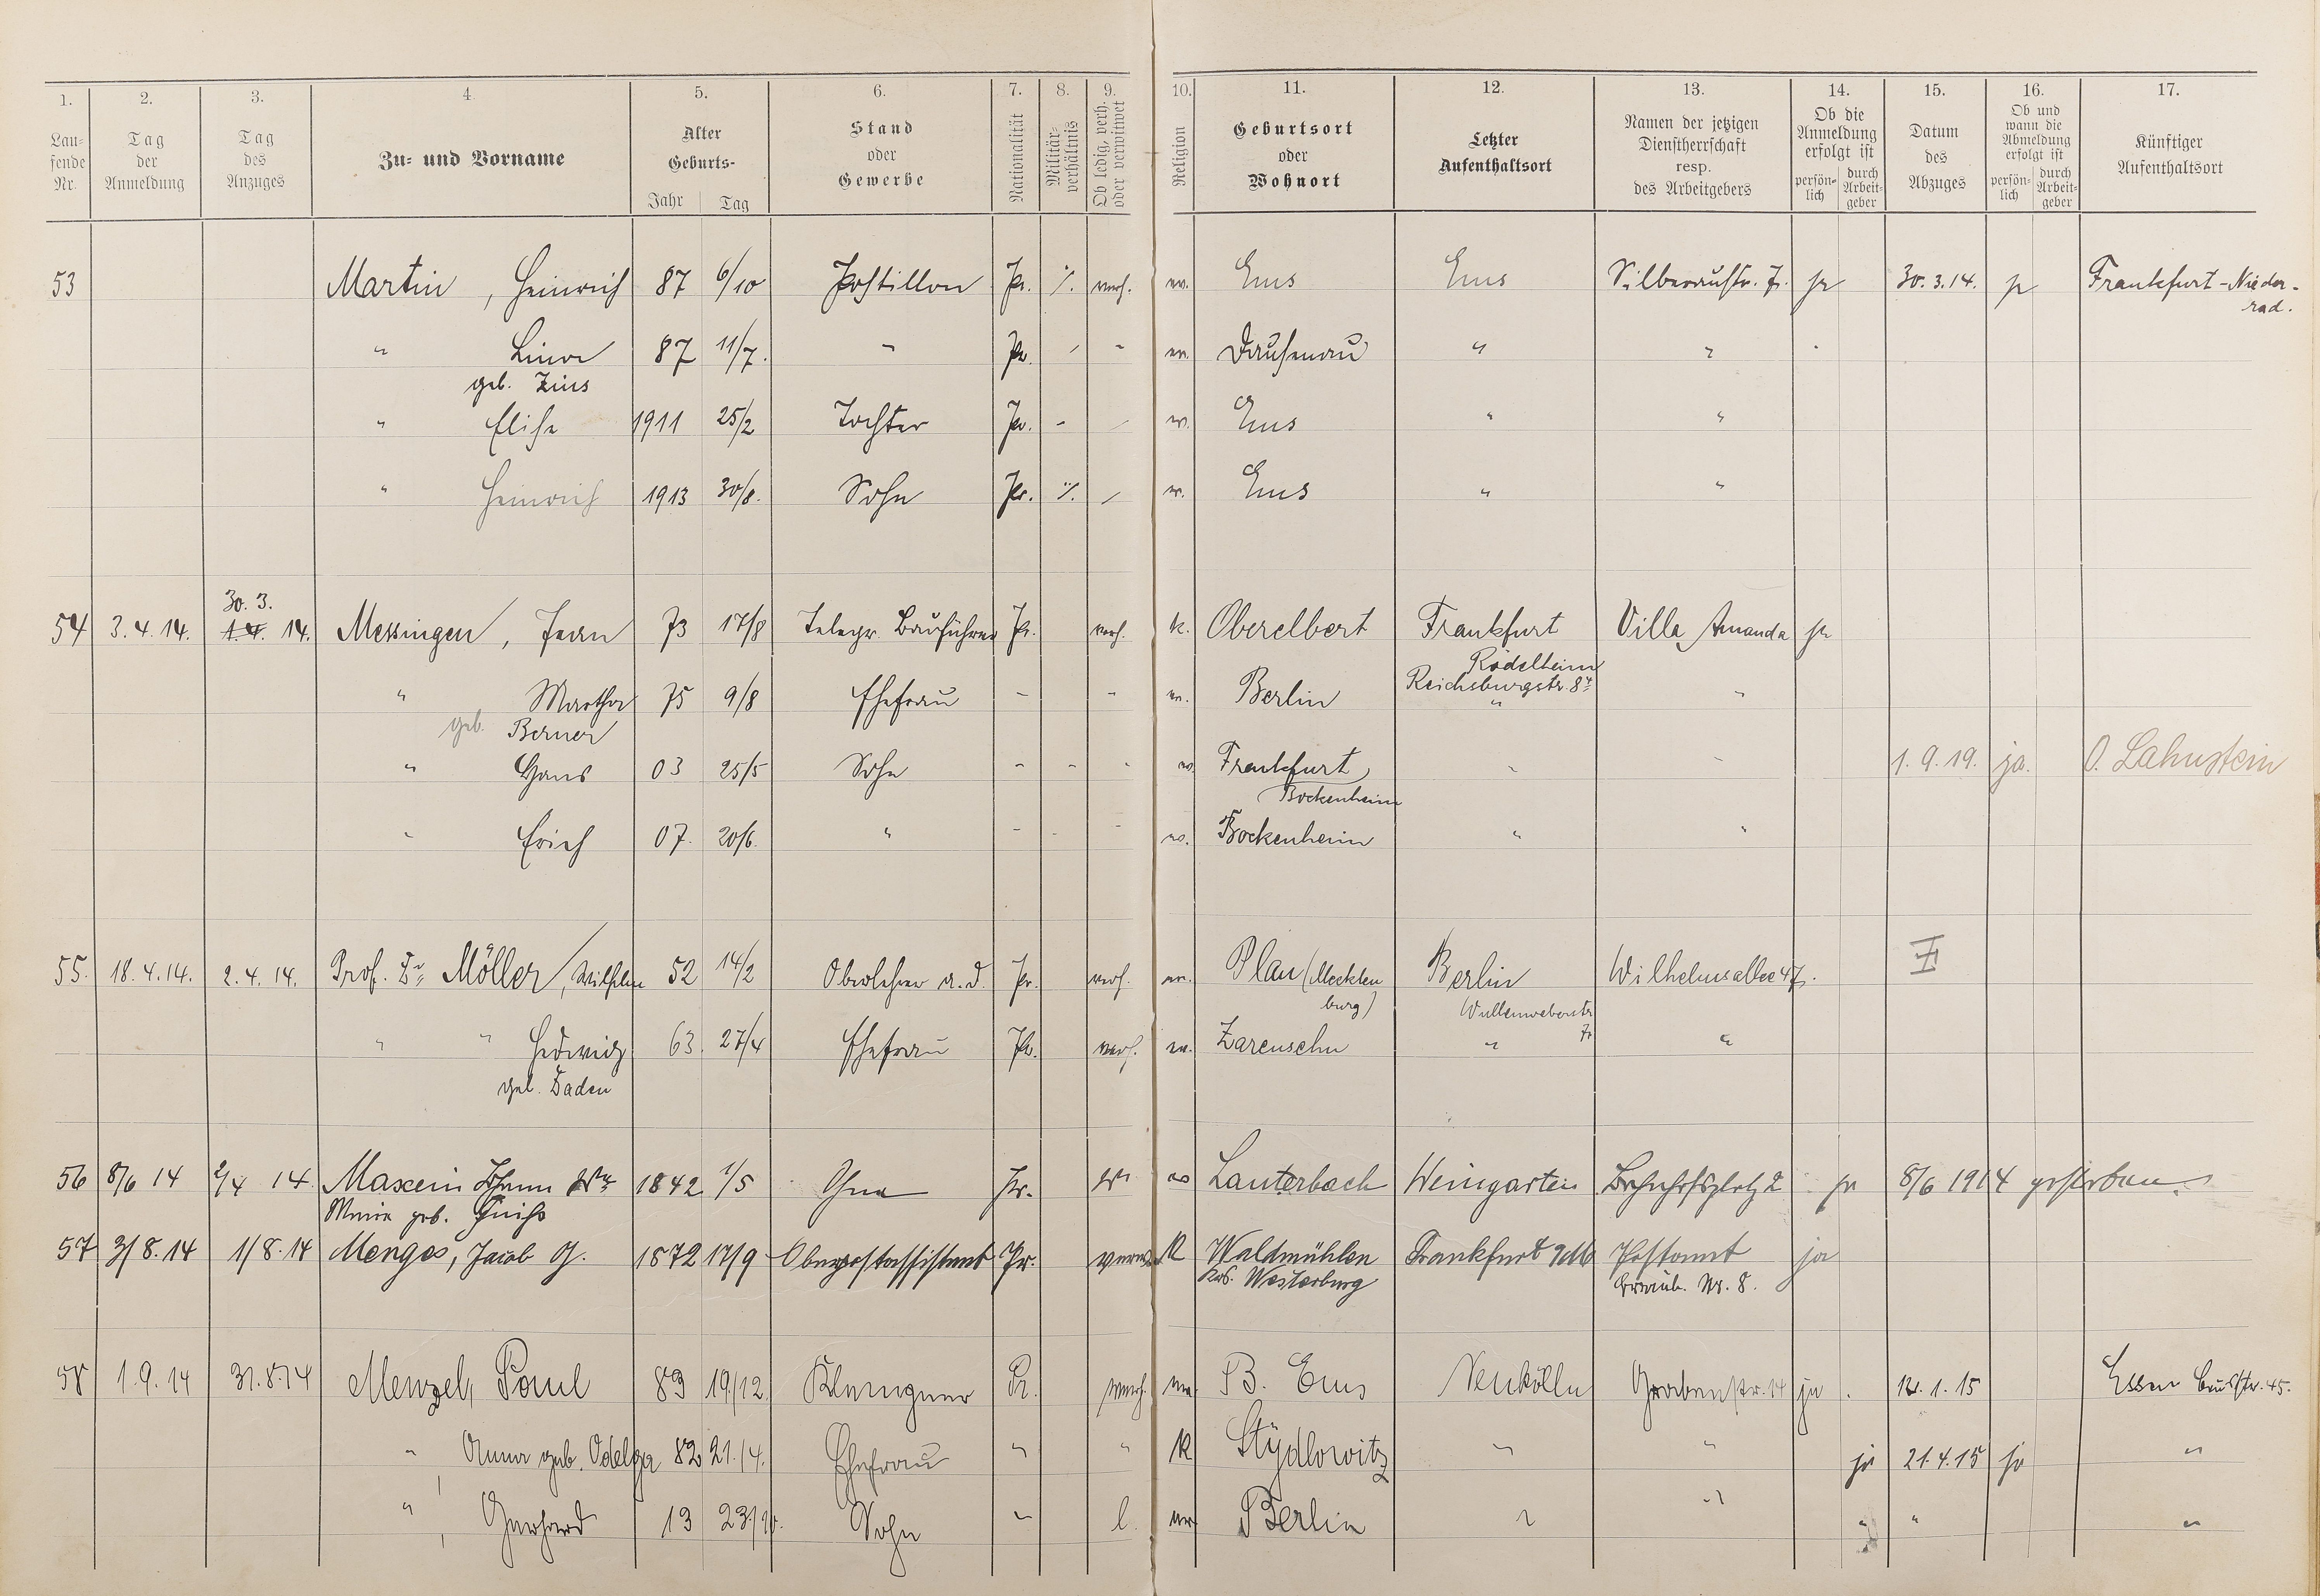 1. 2. 3. 4. 5. 6. 7. 8. 9. 10. 11. 12. 13. 14. 15. 16. 17.
Lau-
fende
Nr.
Tag
der
Anmeldung
Tag
des
Anzuges
Zu- und Vorname
Alter
Geburts-
Jahr Tag
Stand
oder
Gewerbe
Nationalität
Militär-
verhältnis
Ob ledig, verh.
oder verwitwet
Religion
Geburtsort
oder
Wohnort
Letzter
Aufenthaltsort
Namen der jetzigen
Dienstherrschaft
resp.
des Arbeitgebers
Ob die
Anmeldung
erfolgt ist
persön-
lich
durch
Arbeit-
geber
Datum
des
Abzuges
Ob und
wann die
Abmeldung
erfolgt ist
persön-
lich
durch
Arbeit-
geber
Künftiger
Aufenthaltsort
53 Martin, Heinrich 87 6/10 Postillon Pr. ./. verh. ev. Ems Ems Silberaustr. 7. ja 30.3.14. ja Frankfurt-Nieder-
rad.
" Lina 87 11/7. " Pr. - " ev. Dausenau " "
geb. Zins
" Elise 1911 25/2 Tochter Pr. - - ev. Ems " "
" Heinrich 1913 30/8. Sohn Pr. ./. - ev. Ems " "
30. 3.
54 3.4.14. 1.4. 14. Messingen, Jean 73 17/8 Telegr. Bauführer Pr. verh. k. Oberelbert Frankfurt Villa Amanda ja
Rödelheim
Reichsburgstr. 8
" Martha 75 9/8 Ehefrau - " ev. Berlin " "
geb. Berner
" Hans 03 25/5 Sohn - - - ev. Frankfurt " " 1.9.19. ja. O. Lahnstein
Bockenheim
" Erich 07. 20/6. " - - - ev. Bockenheim " "
55. 18.4.14. 2.4.14. Prof. Dr. Möller, Wilhelm 52 14/2 Oberlehrer a.d. Pr. verh. ev. Plau (Mecklen Berlin Wilhelmsallee 47.
burg) Wullenweberstr
7
" " Hedwig 63. 27/4 Ehefrau Pr. verh. ev. Zarensehn " "
geb. Daden
56 8/6 14 2/4 14. Maxein Johann Ww 1842 1/5 Ohne Pr. Ww ev Lauterbach Weingarten Bahnhofsplatz 2 ja 8/6 1914 gestorben.
Maria geb.
57 3/8.14 1/8.14 Menges, Jacob J. 1872 17/9 Oberpostassistent Pr. verw. K Waldmühlen Frankfurt a/M Postamt ja
Krs. Westerburg Graub. Nr. 8.
58 1.9.14 31.8.14 Menzel, Paul 83 19/12. Klempner Pr. verh. ev B. Ems Neukölln Grabenstr. 14 ja . 12.1.15 Essen 45.
" , Anna geb. Odelga 82 21./4. Ehefrau " " K Stÿdlowitz " " ja 21.4.15 ja "
" , Gerhard 13 23./10. Sohn " l. ev Berlin " " " " "